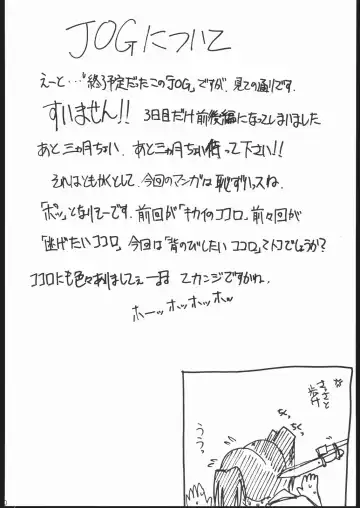 JOGについて
えーと…終了予定だったこの「JOG」ですが、見ての通りです。
すいません!! 3日目だけ前後編になってしまいました
あと三ヵ月ちょい、あと三ヵ月ちょい待って下さい!!
それはともかくとして、今回のマンガは恥ずいっスね。
「ポッ」となりそーです。前回が「キカイのココロ」、前々回が
「逃げたいココロ」、今回は「背のびしたいココロ」ってトコでしょうか?
ココロにも色々ありましてェー
ってカンジですかね。
ホーッホッホッホッ
さっさと
歩け
ううっ